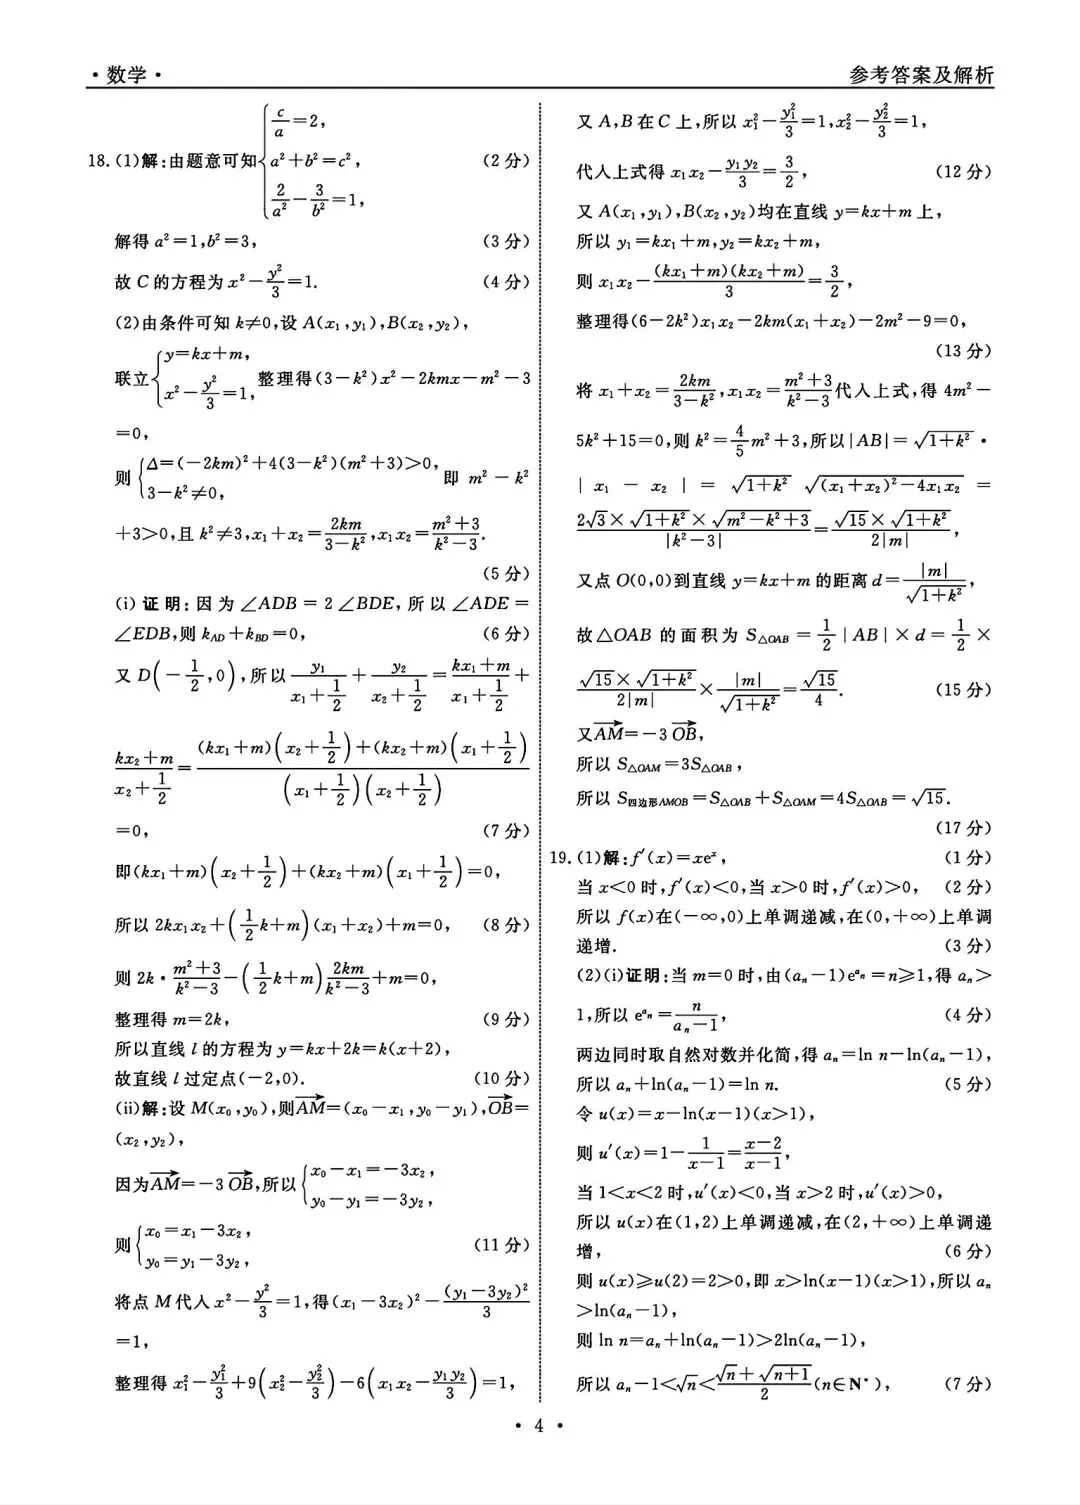 ·数学·
参考答案及解析
18.(1)解:由题意可知{c/a=2, a²+b²=c², 2/a²-3/b²=1, (2分)
解得 a²=1,b²=3, (3分)
故 C 的方程为 x²-y²/3=1. (4分)
(2)由条件可知 k≠0,设 A(x₁,y₁),B(x₂,y₂),
联立{y=kx+m, x²-y²/3=1, 整理得(3-k²)x²-2kmx-m²-3
=0,
则{Δ=(-2km)²+4(3-k²)(m²+3)>0, 3-k²≠0, 即 m²-k²
+3>0,且 k²≠3,x₁+x₂=2km/(3-k²),x₁x₂=(m²+3)/(k²-3).
(5分)
(i)证明:因为∠ADB=2∠BDE,所以∠ADE=
∠EDB,则 k_AD+k_BD=0, (6分)
又 D(-1/2,0),所以 y₁/(x₁+1/2)+y₂/(x₂+1/2)=(kx₁+m)/(x₁+1/2)+
(kx₂+m)/(x₂+1/2)=[(kx₁+m)(x₂+1/2)+(kx₂+m)(x₁+1/2)]/[(x₁+1/2)(x₂+1/2)]
=0, (7分)
即(kx₁+m)(x₂+1/2)+(kx₂+m)(x₁+1/2)=0,
所以 2kx₁x₂+(1/2k+m)(x₁+x₂)+m=0, (8分)
则 2k·(m²+3)/(k²-3)-(1/2k+m)2km/(k²-3)+m=0,
整理得 m=2k, (9分)
所以直线 l 的方程为 y=kx+2k=k(x+2),
故直线 l 过定点(-2,0). (10分)
(ii)解:设 M(x₀,y₀),则AM→=(x₀-x₁,y₀-y₁),OB→=
(x₂,y₂),
因为AM→=-3OB→,所以{x₀-x₁=-3x₂, y₀-y₁=-3y₂,
则{x₀=x₁-3x₂, y₀=y₁-3y₂, (11分)
将点 M 代入 x²-y²/3=1,得(x₁-3x₂)²-(y₁-3y₂)²/3
=1,
整理得 x₁²-y₁²/3+9(x₂²-y₂²/3)-6(x₁x₂-y₁y₂/3)=1,
又 A,B 在 C 上,所以 x₁²-y₁²/3=1,x₂²-y₂²/3=1,
代入上式得 x₁x₂-y₁y₂/3=3/2, (12分)
又 A(x₁,y₁),B(x₂,y₂)均在直线 y=kx+m 上,
所以 y₁=kx₁+m,y₂=kx₂+m,
则 x₁x₂-(kx₁+m)(kx₂+m)/3=3/2,
整理得(6-2k²)x₁x₂-2km(x₁+x₂)-2m²-9=0,
(13分)
将 x₁+x₂=2km/(3-k²),x₁x₂=(m²+3)/(k²-3)代入上式,得 4m²-
5k²+15=0,则 k²=4/5m²+3,所以|AB|=√(1+k²)·
|x₁-x₂|=√(1+k²)√((x₁+x₂)²-4x₁x₂)=
2√3×√(1+k²)×√(m²-k²+3)/|k²-3|=√15×√(1+k²)/(2|m|),
又点 O(0,0)到直线 y=kx+m 的距离 d=|m|/√(1+k²),
故△OAB 的面积为 S△OAB=1/2|AB|×d=1/2×
√15×√(1+k²)/(2|m|)×|m|/√(1+k²)=√15/4. (15分)
又AM→=-3OB→,
所以 S△OAM=3S△OAB,
所以 S四边形AMOB=S△OAB+S△OAM=4S△OAB=√15.
(17分)
19.(1)解:f′(x)=xeˣ, (1分)
当 x<0 时,f′(x)<0,当 x>0 时,f′(x)>0, (2分)
所以 f(x)在(-∞,0)上单调递减,在(0,+∞)上单调
递增. (3分)
(2)(i)证明:当 m=0 时,由(aₙ-1)e^(aₙ)=n≥1,得 aₙ>
1,所以 e^(aₙ)=n/(aₙ-1), (4分)
两边同时取自然对数并化简,得 aₙ=ln n-ln(aₙ-1),
所以 aₙ+ln(aₙ-1)=ln n. (5分)
令 u(x)=x-ln(x-1)(x>1),
则 u′(x)=1-1/(x-1)=(x-2)/(x-1),
当 1<x<2 时,u′(x)<0,当 x>2 时,u′(x)>0,
所以 u(x)在(1,2)上单调递减,在(2,+∞)上单调递
增, (6分)
则 u(x)≥u(2)=2>0,即 x>ln(x-1)(x>1),所以 aₙ
>ln(aₙ-1),
则 ln n=aₙ+ln(aₙ-1)>2ln(aₙ-1),
所以 aₙ-1<√n<(√n+√(n+1))/2(n∈N*), (7分)
·4·